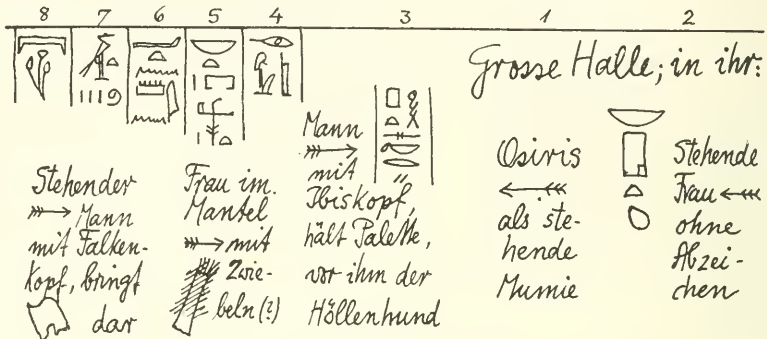 8 7 6 5 4 3 1 2
Grosse Halle; in ihr:
Stehender
Mann
mit Falken-
kopf, bringt
dar
Frau im
Mantel
mit
Zwie-
beln (?)
Mann
mit
Ibiskopf,
hält Palette,
vor ihm der
Höllenhund
Osiris
als ste-
hende
Mumie
Stehende
Frau
ohne
Abzei-
chen